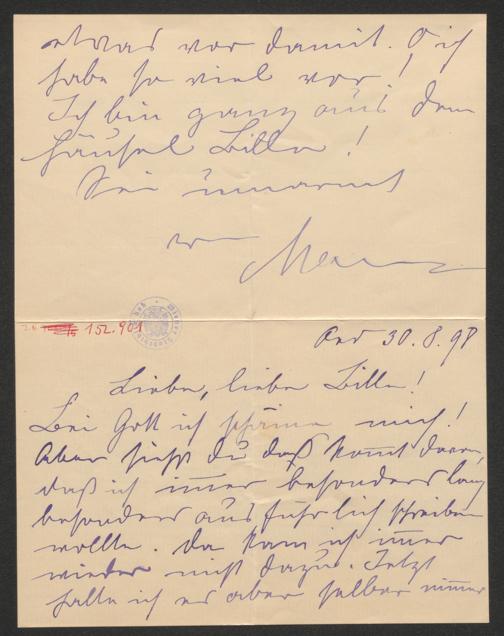 etwas vor damit. O ich
habe so viel vor!
Ich bin ganz aus dem
Häusel Bille!
Sei umarmt
von
152.901
30.8.98
Liebe, liebe Bille!
Bei Gott ich schäme mich!
Aber siehst du daß kommt davon,
daß ich immer besonders lang
besonders ausführlich schreiben
wollte. Da kam ich immer
wieder nicht dazu. Jetzt
halte ich es aber selber nimmer